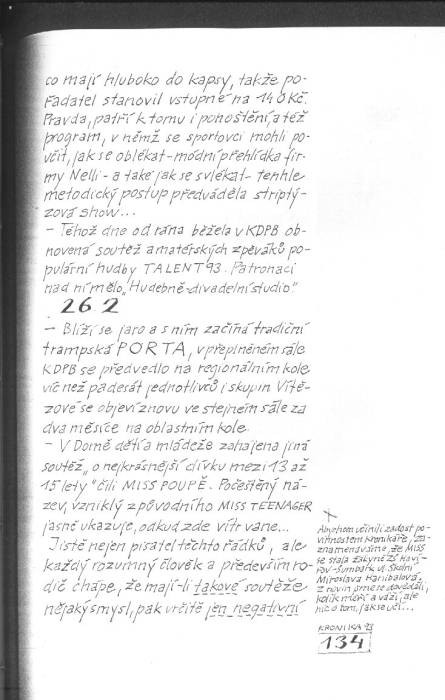 co mají hluboko do kapsy, takže po-
řadatel stanovil vstupné na 140 Kč.
Pravda, patří k tomu i ponoštění, a též
program, v němž se sportovci mohli po-
učit, jak se oblékat - módní přehlídka fir-
my Nelli - a také jak se svlékat - tenhle
metodický postup předváděla striptý-
zová show...
- Téhož dne od rána běžela v KDPB ob-
novená soutěž amatérských zpěváků po-
pulární hudby TALENT 93. Patronaci
nad ní mělo "Hudebně-divadelní studio".
26 2
- Blíží se jaro a s ním začíná tradiční
trampská PORTA, v přeplněném sále
KDPB se předvedlo na regionálním kole
víc než padesát jednotlivců i skupin. Vítě-
zové se objeví znovu ve stejném sále za
dva měsíce na oblastním kole.
- V Domě dětí a mládeže zahájena jiná
soutěž „o nejkrásnější dívku mezi 13 až
15 lety" čili MISS POUPĚ. Počeštěný ná-
zev, vzniklý z původního MISS TEENAGER
jasně ukazuje, odkud zde vítr vane...
Jistě nejen pisatel těchto řádků, ale
každý rozumný člověk a především ro-
dič chápe, že mají-li takové soutěže
nějaký smysl, pak určitě jen negativní
Abychom učinili zadost po-
vinnostem kronikáře, za-
znamenáváme, že MISS
se stala žákyně ZŠ Haví-
řov-Šumbark ul. Školní
Miroslava Hanibalová,
z novin jsme se dověděli,
kolik měří a váží, ale
nic o tom, jak se učí...
KRONIKA 93
134